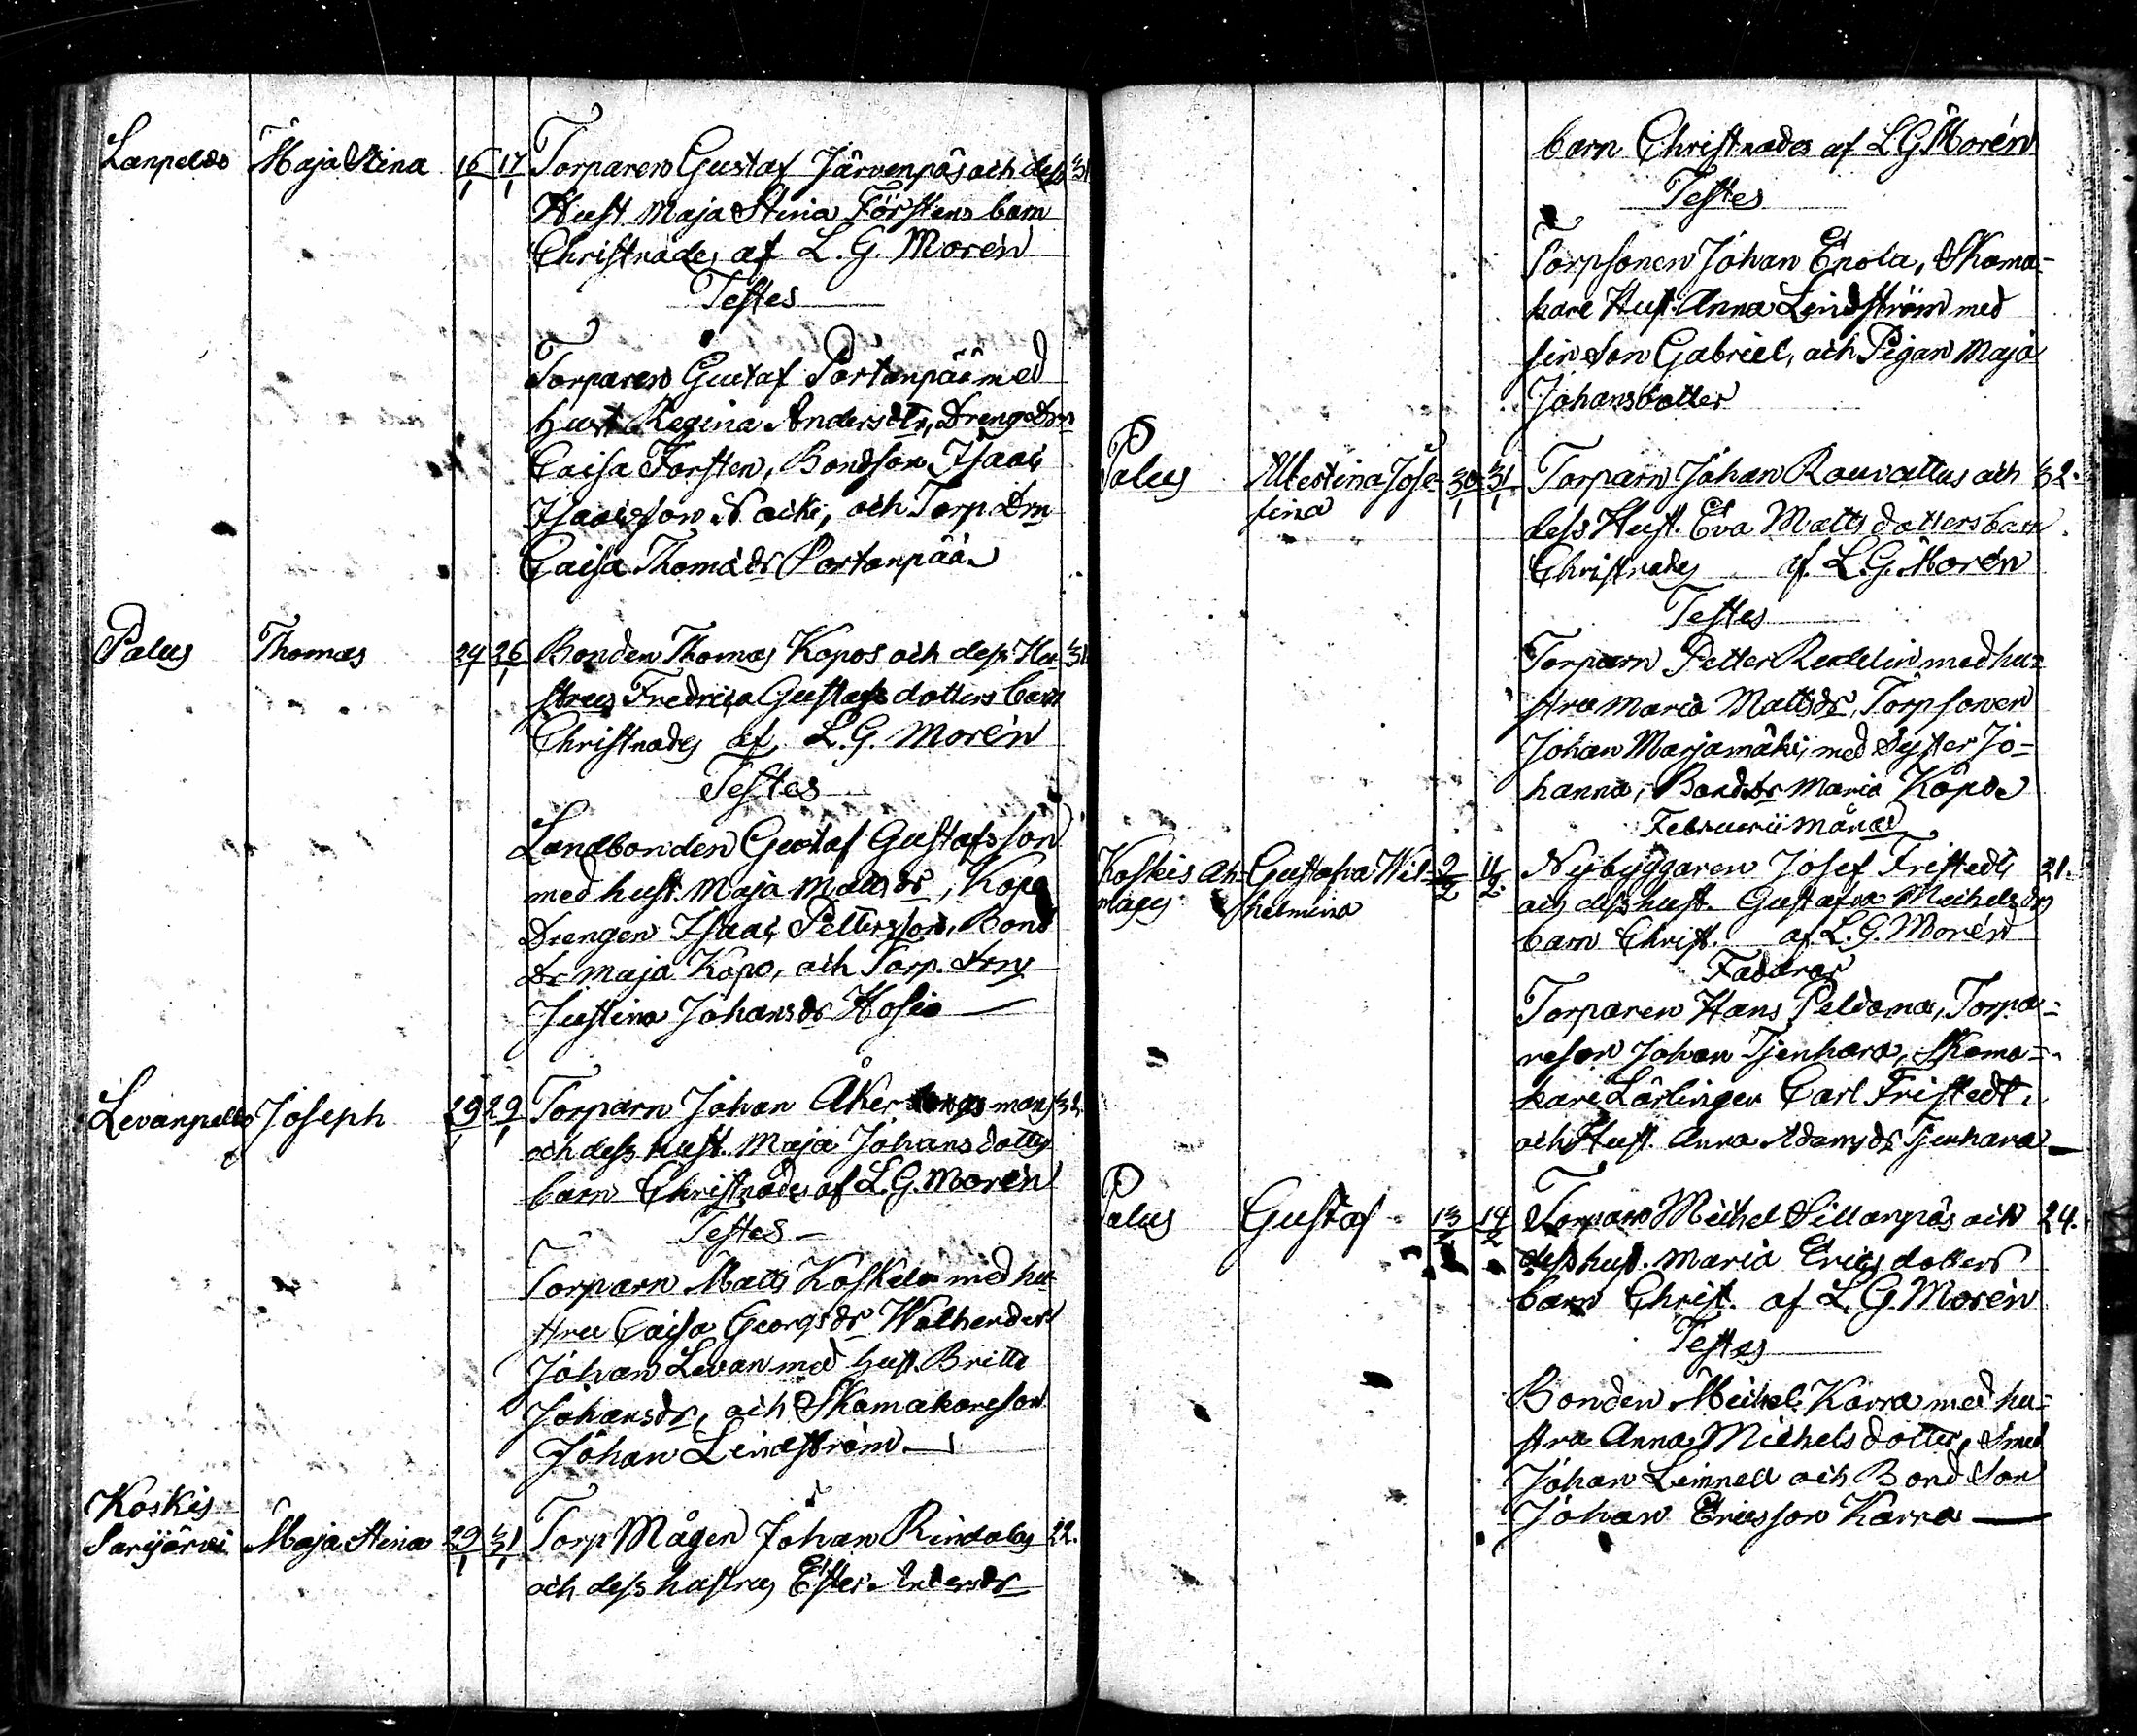 Lanpeldo Maja Stina 16/1 17/1 Torparen Gustaf Järvenpäs och dess 31
Hust Maja Stina Förstens barn
Christnades af L. G. Morén
Testes
Torparen Gustaf Portanpää med
Hust Regina Andersdtr, Drengdrn
Caisa Forsten, Bondson Isaac
Isaacsson Nacki, och Torpdrn
Caisa Thomasdr Portanpää
Palus Thomas 24/1 26/1 Bonden Thomas Kopos och dess Hu- 31
strus Fredrica Gustafsdotters barn
Christnades af L. G. Morén
Testes
Landbonden Gustaf Gustafsson
med hust. Maja Mattsdr, Kopo
Drengen Isaac Pettersson, Bond
dr Maja Kopo, och Torp. drn
Justina Johansdr Kosio
Levanpeldo Joseph 29/1 29/1 Torparn Johan Åkermans 32.
och dess hust. Maja Johansdotters
barn Christnades af L. G. Morén
Testes
Torparn Matts Koskela med hu-
stru Caisa Georgsdr
Johan Levan med hust. Britta
Johansdr, och Skomakareson
Johan Lindström.
Koskis
Sarijärvi Maja Stina 29/1 31/1 Torp Mågen Johan Rindalas 22.
och dess hustrus Ester Andersdr
barn Christnades af L G Morén
Testes
Torpsonen Johan Enola, Skoma-
kare Hust. Anna Lindström med
sin Son Gabriel, och Pigan Maja
Johansdotter
Palus Albertina Jose- 30/1 31/1 Torparn Johan Rouvattus och 32.
fina dess Hust. Eva Mattsdotters barn
Christnades af L. G. Morén
Testes
Torparn Petter Redelin med hu-
stru Maria Mattsdr, Torpsonen
Johan Marjamäki, med Syster Jo-
hanna, Bonddr Maria Kopo
Februarii månad
Koskis Ah- Gustafva Wil- 9/2 11/2 Nybyggaren Josef Fristedts 21.
maus helmina och dess hust. Gustafva Michelsdrs
barn Christ. af L. G. Morén
Faddrar
Torparen Hans Peldoma, Torpa-
reson Johan Tjenhara, Skoma-
kare Lärlingen Carl Fristedt,
och Hust. Anna Adamsdr Tjenhara
Palus Gustaf 13/2 14/2 Torparn Michel Sillanpäs och 24.
dess hust. Maria Ericsdotters
barn Christ. af L. G. Morén
Testes
Bonden Michel Karra med hu-
stru Anna Michelsdotter, Smed
Johan Limnell och Bond Son
Johan Ericsson Karra